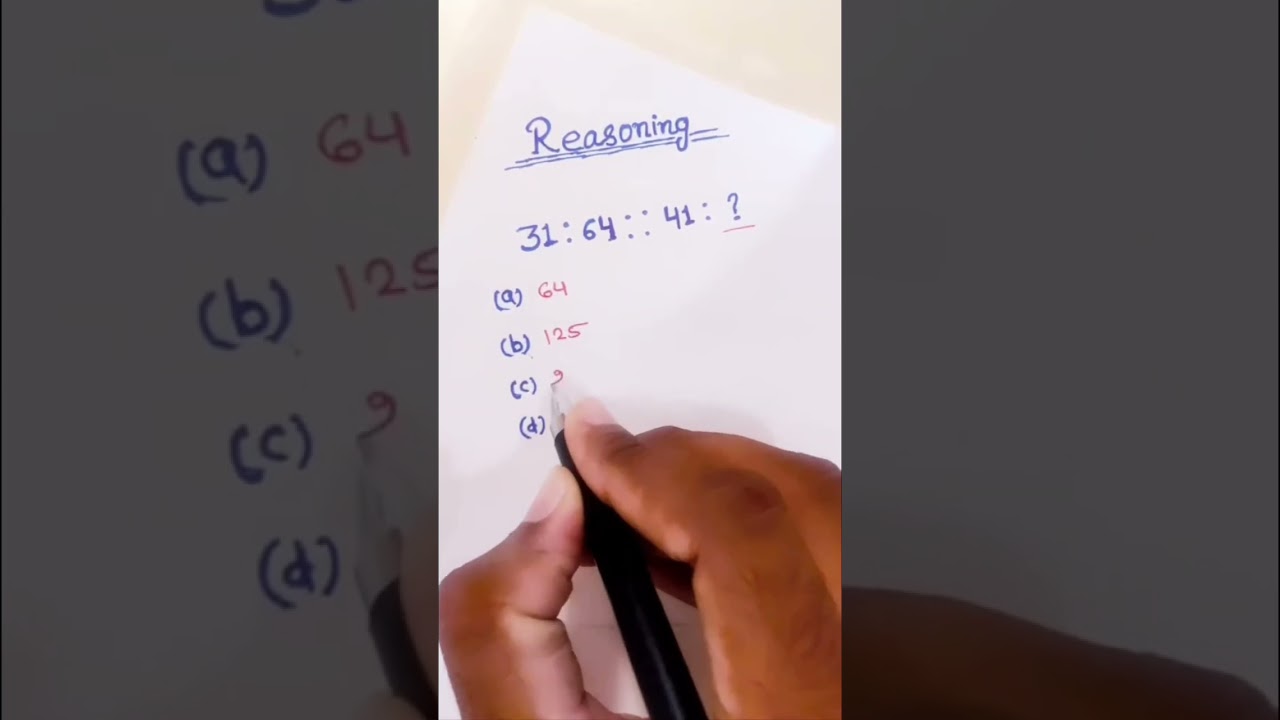 Reasoning
31 : 64 :: 41 : ?
(a) 64
(b) 125
(c) 9
(d)